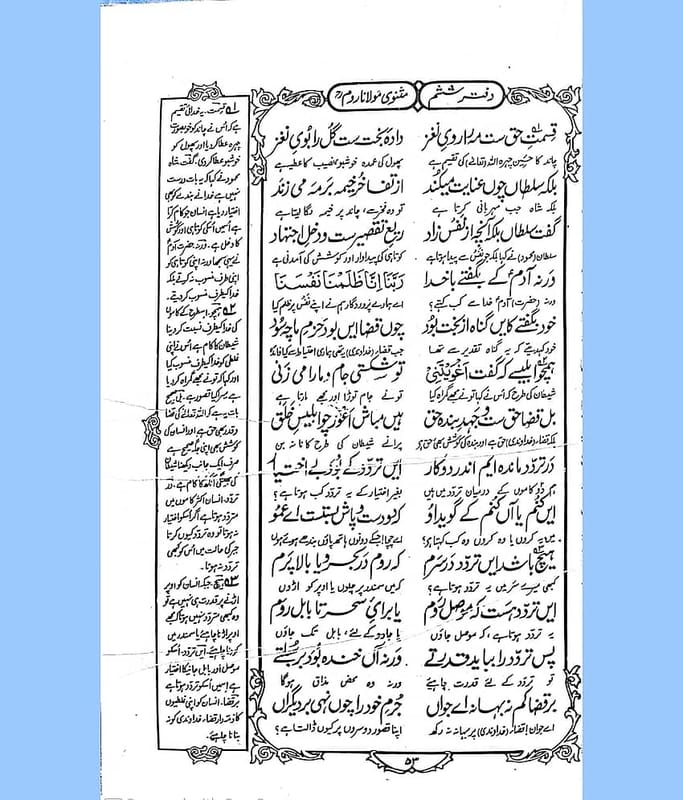 دفتر ششم
مثنوی مولانا روم
قسمتِ حق ست مہ را روی نغز
دادۂ بخت ست گُل را بوی نغز
چاند کا حسین چہرہ اللہ (تعالیٰ) کی تقسیم ہے
پھول کی عمدہ خوشبو نصیب کا عطیہ ہے
بلکہ سلطاں چوں عنایت میکند
از تفاخر خیمہ بر مہ می زند
بلکہ شاہ جب مہربانی کرتا ہے
تو وہ فخر سے، چاند پر خیمہ لگا لیتا ہے
گفت سلطاں بلکہ آنچہ از نفس زاد
ریعِ تقصیر ست و دخلِ اجتہاد
سلطان (محمود) نے کہا بلکہ جو نفس سے پیدا ہوتا ہے
کوتاہی کی پیداوار اور کوشش کی آمدنی ہے
ورنہ آدم کے بگفتے با خدا
رَبَّنَا اِنَّا ظَلَمْنَا نَفْسَنَا
ورنہ (حضرت) آدم خدا سے کب کہتے؟
اے ہمارے پروردگار ہم نے اپنے نفس پر ظلم کیا
خود بگفتے کایں گناہ از بخت بود
چوں قضا ایں بود حزمِ ما چہ سود
خود کہدیتے کہ یہ گناہ تقدیر سے تھا
جب قضا (خداوندی) یہ تھی ہماری احتیاط سے کیا فائدہ
ہمچو ابلیسے کہ گفت اَغْوَیْتَنِیْ
تو شکستی جام و ما را می زنی
شیطان کی طرح کہ اس نے کہا تو نے مجھے گمراہ کیا
تو نے جام توڑا اور مجھے مارتا ہے
بل قضا حق ست و جہدِ بندہ حق
ہیں مباش اعور چو ابلیسِ خلق
بلکہ قضا (خداوندی) حق ہے اور بندہ کی کوشش بھی حق ہے
پرانے شیطان کی طرح کانا نہ بن
در تردد ماندہ ایم اندر دو کار
ایں تردد کے بود بے اختیار
ہم دو کاموں کے درمیان تردد میں ہیں
بغیر اختیار کے یہ تردد کب ہوتا ہے؟
ایں کنم یا آں کنم کے گوید او
کہ دو دست و پاش بستست اے عمو
میں یہ کروں یا وہ کروں وہ کب کہتا ہے؟
اے چچا! جسکے دونوں ہاتھ پاؤں بندھے ہوئے ہوں
ہیچ باشد ایں تردد در سرم
کہ روم در بحر و یا بالا پرم
کبھی میرے سر میں یہ تردد ہوتا ہے؟
کہ میں سمندر میں چلوں یا اوپر کو اڑوں
ایں تردد ہست کہ موصل روم
یا برائے سحر تا بابل روم
یہ تردد ہوتا ہے، کہ موصل جاؤں
یا جادو کے لئے، بابل تک جاؤں
پس تردد را بباید قدرتے
ورنہ آں خندہ بود بر سُبلتے
تو تردد کے لئے قدرت چاہئے
ورنہ وہ محض مذاق ہوگا
بر قضا کم نہ بہانہ اے جواں
جُرمِ خود را چوں نہی بر دیگراں
اے جوان! قضا (خداوندی) پر بہانہ نہ رکھ
اپنا قصور دوسروں پر کیوں ڈالتا ہے؟
۵۱ قسمت۔ یہ خدائی تقسیم
ہے کہ اُس نے چاند کو خوبصورت
چہرہ عطا کر دیا اور پھول کو
خوشبو عطا کر دی۔ گفت شاہ
محمود نے کہا کہ یہ بات درست
نہیں ہے خدا نے بندے کو بھی
اختیار دیا ہے انسان جو کام کرتا
ہے اُس میں اُسکی کوتاہی اور کوشش
کا دخل ہے۔ ورنہ حضرت آدم
اپنی طرف نسبت نہ کرتے بلکہ
خدا کیطرف منسوب کر دیتے۔
۵۲ ہمچو۔ اس طرح کے کاموں
کی خدا کیطرف نسبت کر دینا
شیطان کا کام ہے اُس نے اپنی
غلطی کو خدا کیطرف منسوب کیا
اور کہا کہ تو نے مجھے گمراہ کر دیا
ہے میرا کیا قصور ہے۔ بل صحیح
بات یہ ہے کہ اللہ تعالےٰ کی قضا
و قدر بھی حق ہے اور انسان کی
کوشش بھی اپنی جگہ صحیح ہے
صرف ایک جانب دیکھنا شیطان
کی بھینگی آنکھ کا کام ہے۔ در
تردد۔ انسان اکثر کاموں میں
متردد ہوتا ہے اگر اُسکو اختیار
نہ ہوتا تو وہ تردد کیوں کرتا
جبر کی حالت میں اُس کو کبھی
تردد نہ ہوتا۔
۵۳ ہیچ۔ جبکہ انسان کو اوپر
اڑنے پر قدرت ہی نہیں ہے تو
وہ کبھی متردد نہیں ہوتا کہ مجھے
اوپر اڑنا چاہئے یا سمندر میں
کودنا چاہئے۔ ایں تردد۔ اُسکو
موصل اور بابل جانیکا اختیار
ہے اِسمیں اُسکو تردد ہوتا ہے
بر قضا۔ انسان کو اپنی غلطیوں
کا ذمہ دار قضاء خداوندی کو نہ
بنانا چاہئے۔
۵۳